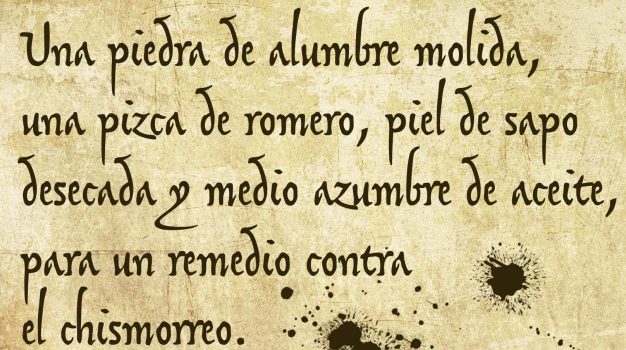 Una piedra de alumbre molida,
una pizca de romero, piel de sapo
desecada y medio azumbre de aceite,
para un remedio contra
el chismorreo.